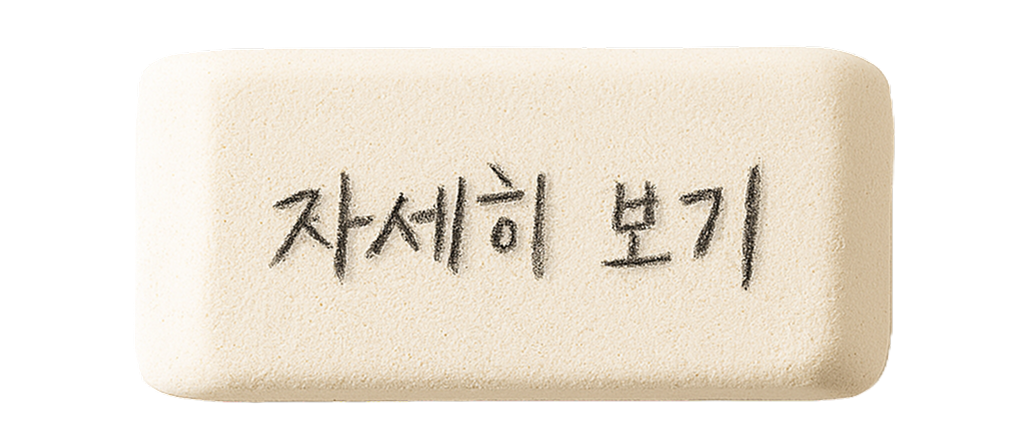 자세히 보기